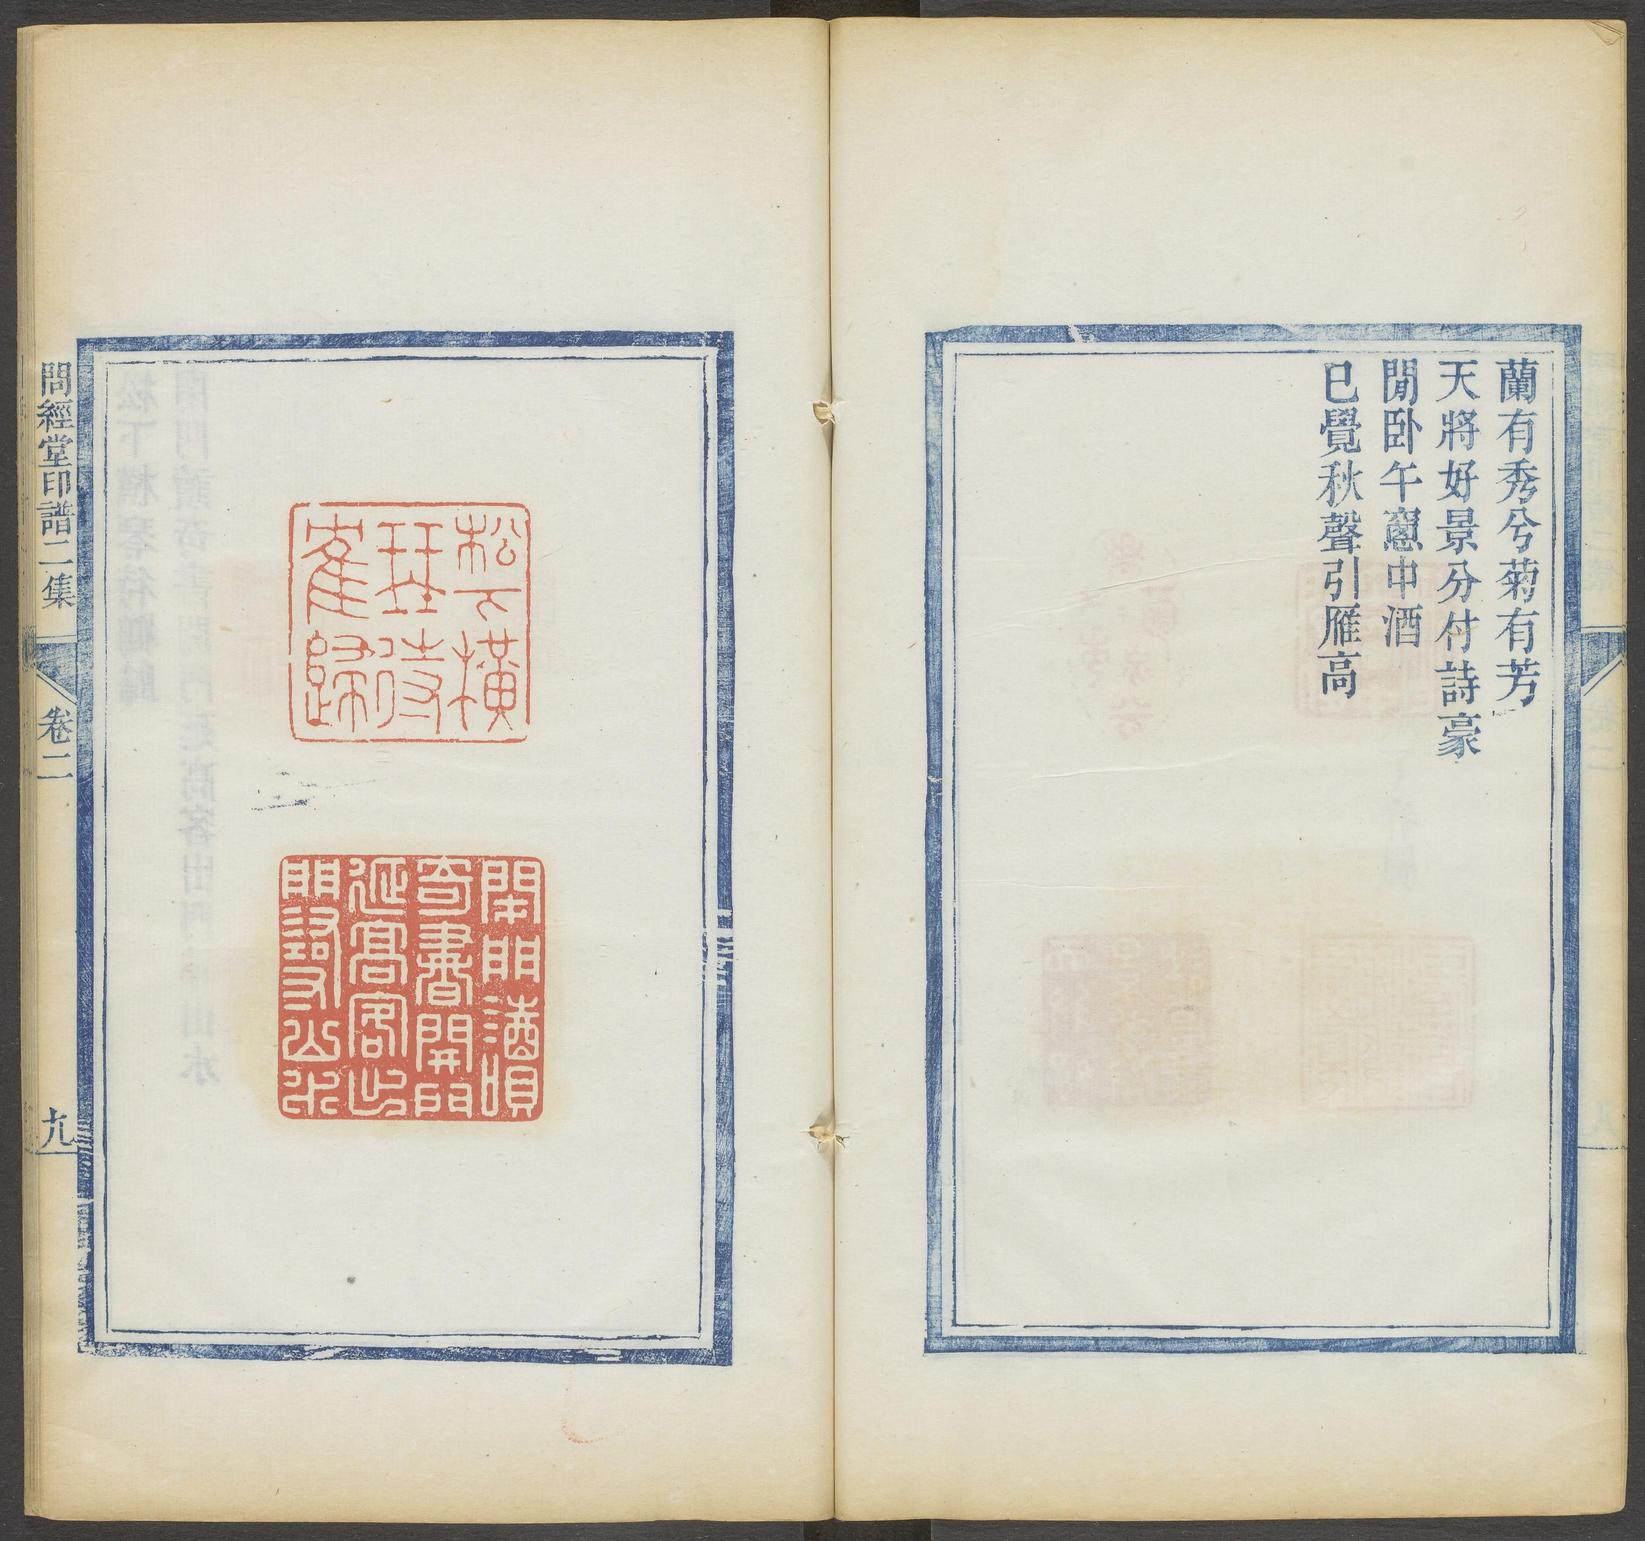 蘭有秀兮菊有芳
天將好景分付詩豪
閒卧午窻中酒
已覺秋聲引雁高
松下橫
琹待
隺歸
閉門讀
奇書開門
延高客出
門尋山水
問經堂印譜二集
卷二
九